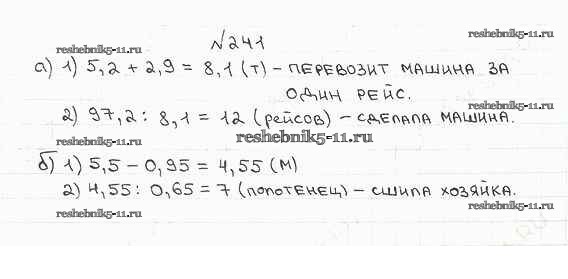 №241
reshebnik5-11.ru
а) 1) 5,2 + 2,9 = 8,1 (т) – перевозит машина за
один рейс.
reshebnik5-11.ru
2) 97,2 : 8,1 = 12 (рейсов) – сделала машина.
reshebnik5-11.ru reshebnik5-11.ru
б) 1) 5,5 – 0,95 = 4,55 (м)
2) 4,55 : 0,65 = 7 (полотенец) – сшила хозяйка.
reshebnik5-11.ru reshebnik5-11.ru